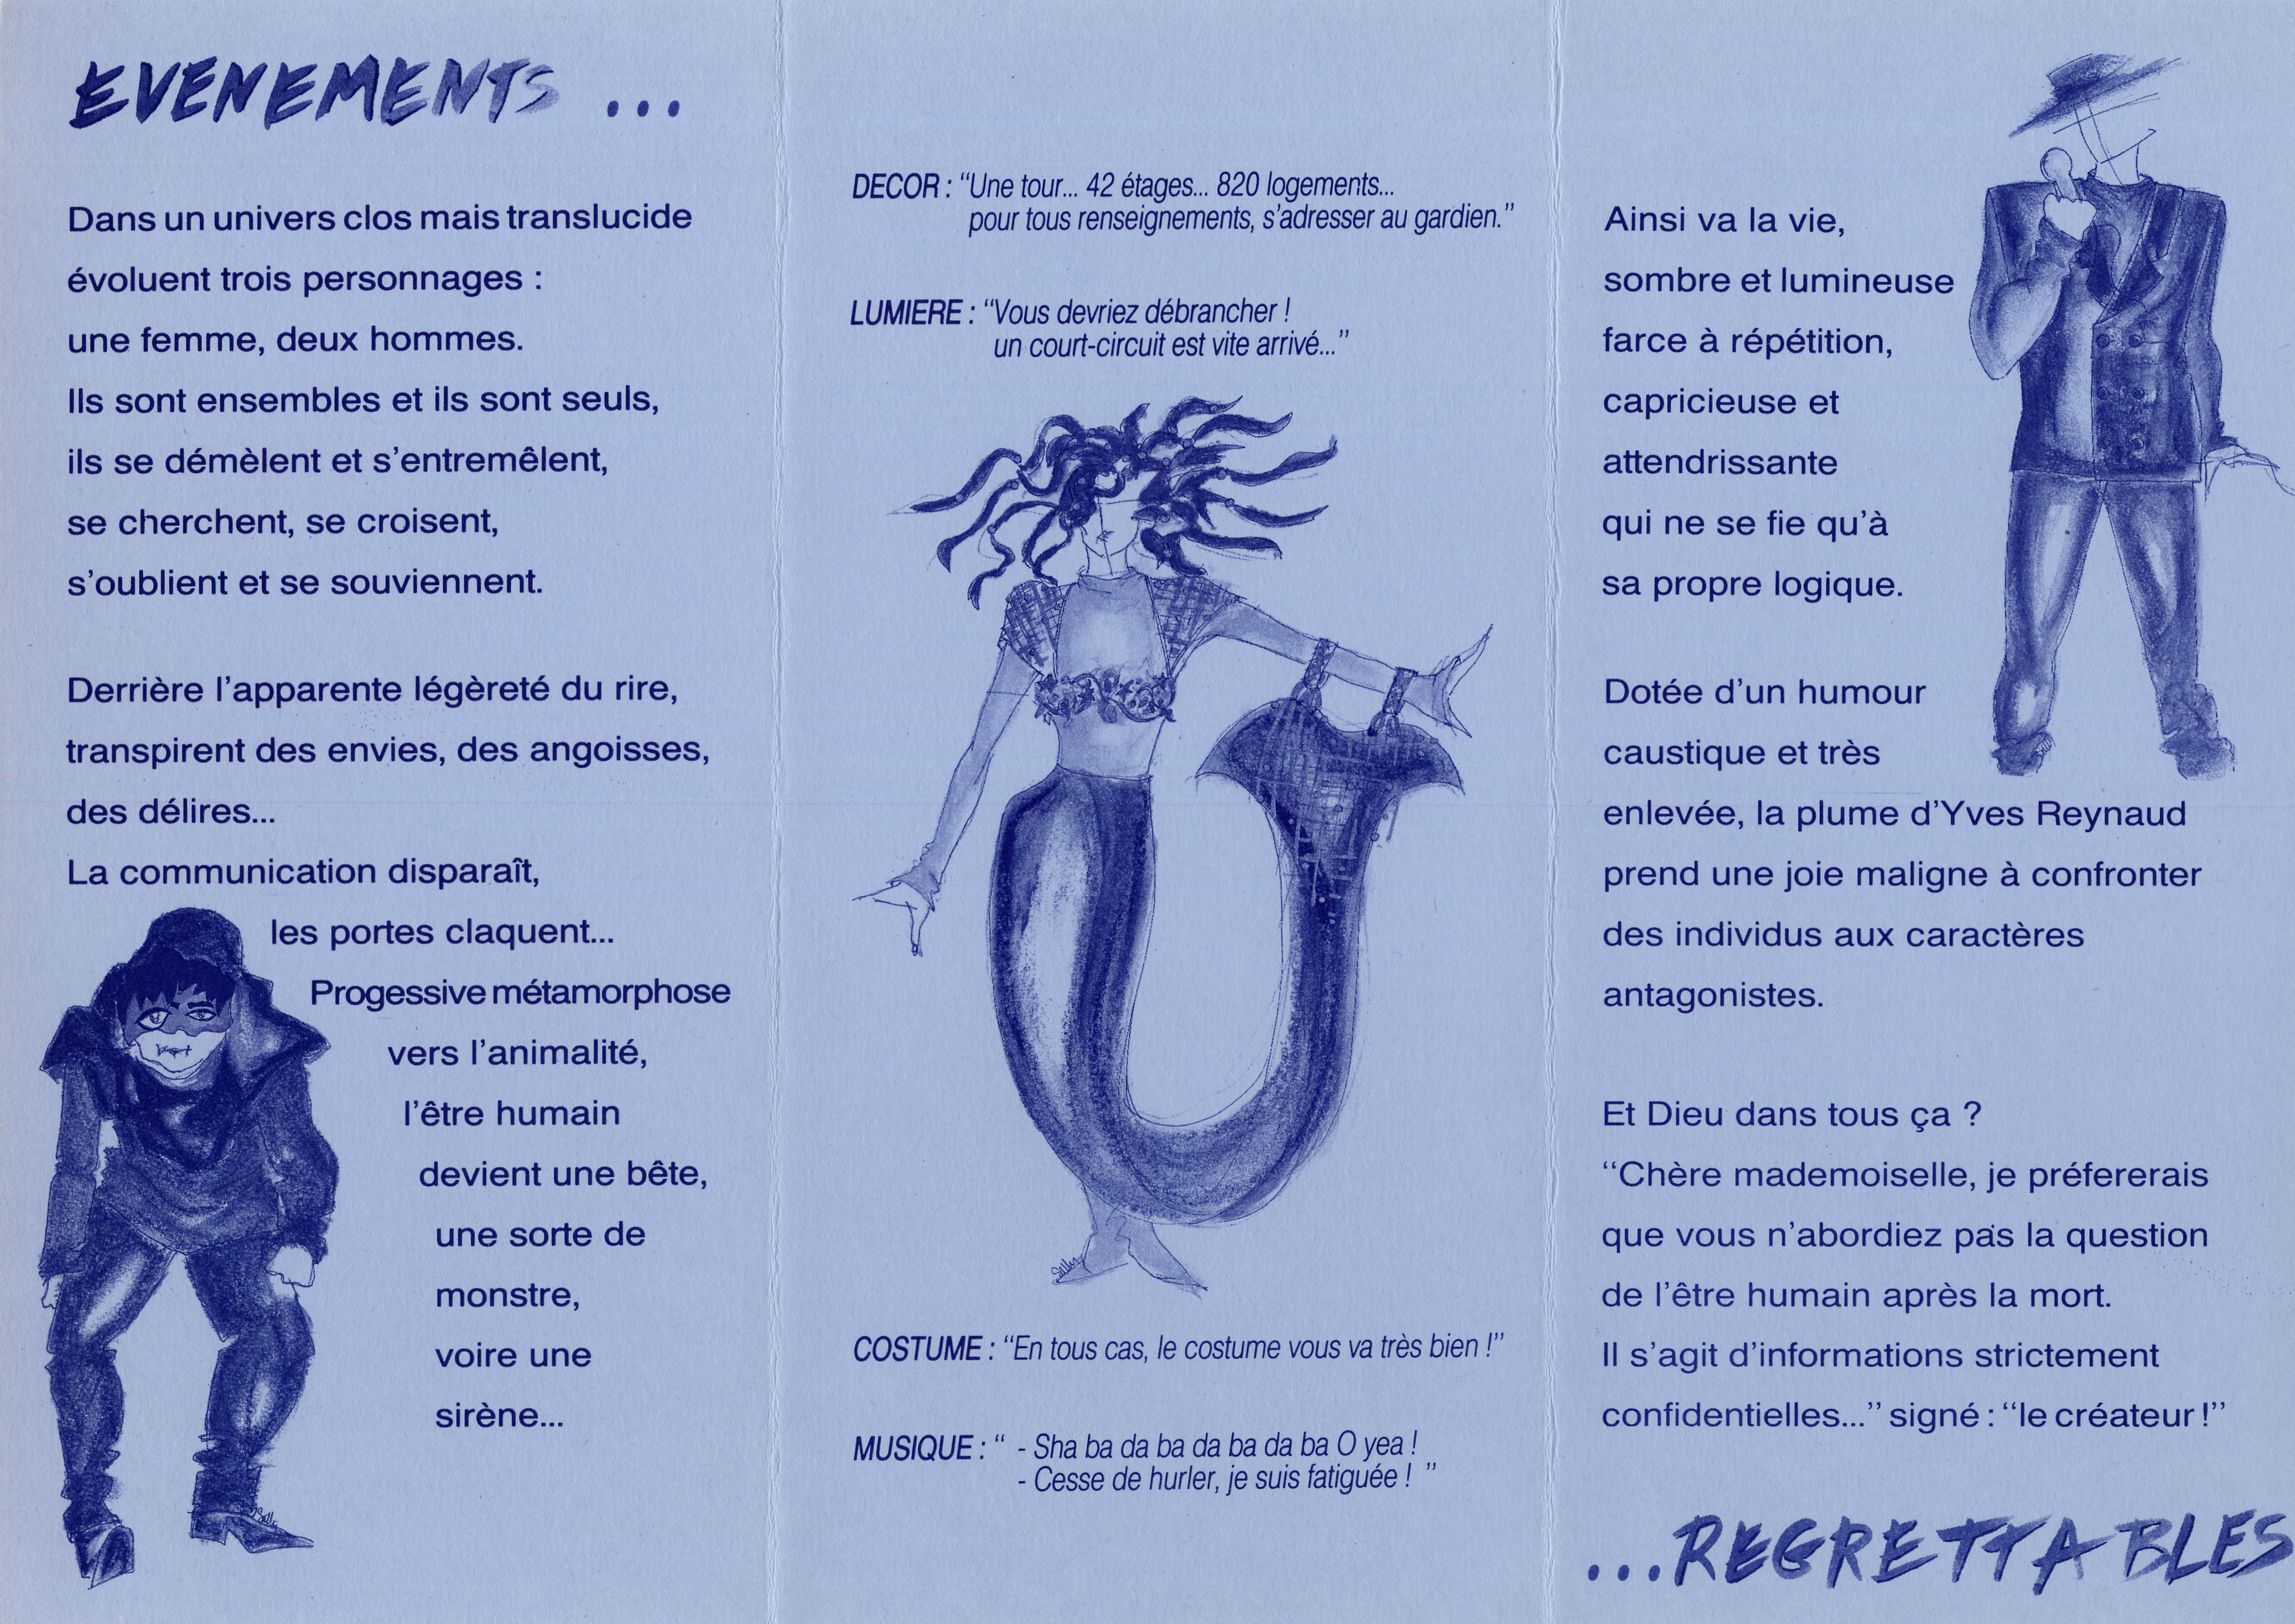 EVENEMENTS ...
Dans un univers clos mais translucide
évoluent trois personnages :
une femme, deux hommes.
Ils sont ensembles et ils sont seuls,
ils se démèlent et s'entremêlent,
se cherchent, se croisent,
s'oublient et se souviennent.
Derrière l'apparente légèreté du rire,
transpirent des envies, des angoisses,
des délires...
La communication disparaît,
les portes claquent...
Progessive métamorphose
vers l'animalité,
l'être humain
devient une bête,
une sorte de
monstre,
voire une
sirène...
DECOR : “Une tour... 42 étages... 820 logements...
pour tous renseignements, s'adresser au gardien.”
LUMIERE : “Vous devriez débrancher !
un court-circuit est vite arrivé...”
COSTUME : “En tous cas, le costume vous va très bien !”
MUSIQUE : “ - Sha ba da ba da ba da ba O yea !
- Cesse de hurler, je suis fatiguée ! ”
Ainsi va la vie,
sombre et lumineuse
farce à répétition,
capricieuse et
attendrissante
qui ne se fie qu'à
sa propre logique.
Dotée d'un humour
caustique et très
enlevée, la plume d'Yves Reynaud
prend une joie maligne à confronter
des individus aux caractères
antagonistes.
Et Dieu dans tous ça ?
“Chère mademoiselle, je préfererais
que vous n'abordiez pas la question
de l'être humain après la mort.
Il s'agit d'informations strictement
confidentielles...” signé : “le créateur !”
...REGRETTABLES